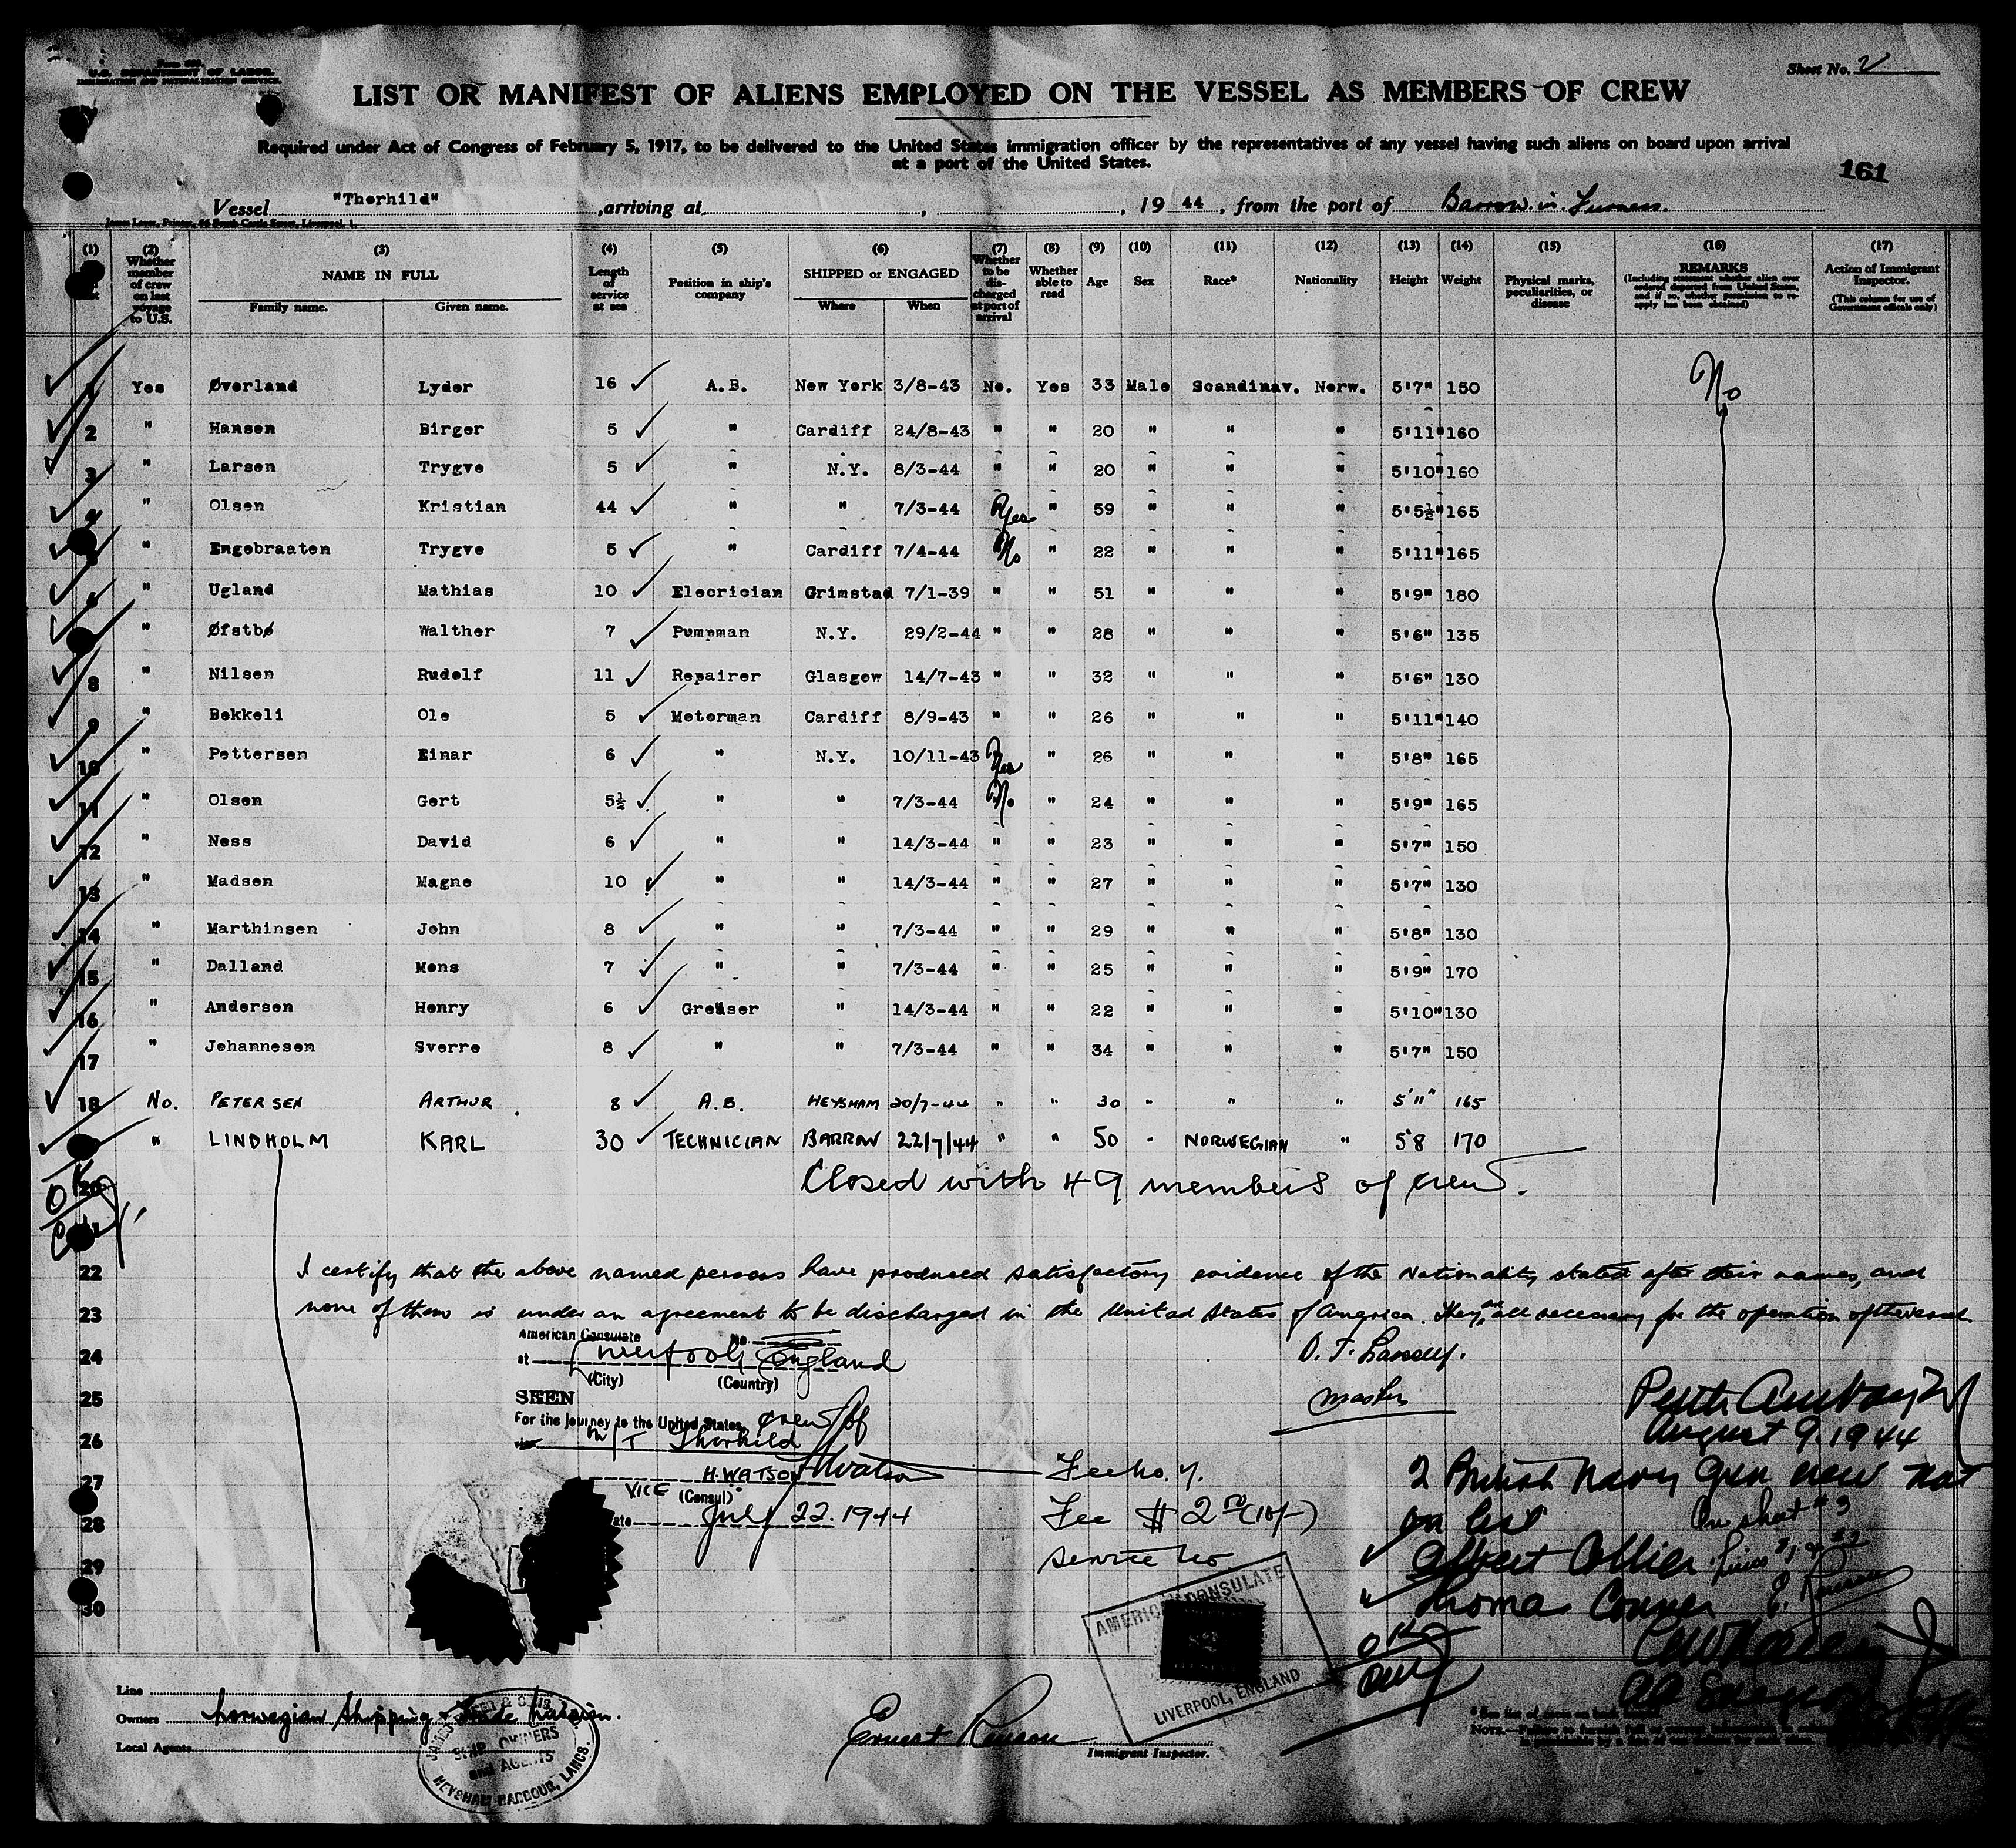 Form 680
U.S. DEPARTMENT OF LABOR
IMMIGRATION AND NATURALIZATION SERVICE
Sheet No. 2
LIST OR MANIFEST OF ALIENS EMPLOYED ON THE VESSEL AS MEMBERS OF CREW
Required under Act of Congress of February 5, 1917, to be delivered to the United States immigration officer by the representatives of any vessel having such aliens on board upon arrival
at a port of the United States.
161
Vessel "Thorhild" , arriving at , , 19 44 , from the port of Barrow in Furness.
(1) (2) Whether member of crew on last voyage to U.S. (3) NAME IN FULL Family name. Given name. (4) Length of service at sea (5) Position in ship's company (6) SHIPPED or ENGAGED Where When (7) Whether to be discharged at port of arrival (8) Whether able to read (9) Age (10) Sex (11) Race* (12) Nationality (13) Height (14) Weight (15) Physical marks, peculiarities, or disease (16) REMARKS (Including statement whether alien ever ordered deported from United States, and if so, whether permission to reapply has been obtained) (17) Action of Immigrant Inspector. (This column for use of Government officials only)
1 Yes Øverland Lyder 16 A.B. New York 3/8-43 No. Yes 33 Male Scandinav. Norw. 5'7" 150 No
2 " Hansen Birger 5 " Cardiff 24/8-43 " " 20 " " " 5'11" 160
3 " Larsen Trygve 5 " N.Y. 8/3-44 " " 20 " " " 5'10" 160
4 " Olsen Kristian 44 " " 7/3-44 Yes " 59 " " " 5'5½" 165
" Engebraaten Trygve 5 " Cardiff 7/4-44 No " 22 " " " 5'11" 165
6 " Ugland Mathias 10 Elecrician Grimstad 7/1-39 " " 51 " " " 5'9" 180
" Øfstbø Walther 7 Pumpman N.Y. 29/2-44 " " 28 " " " 5'6" 135
8 " Nilsen Rudolf 11 Repairer Glasgow 14/7-43 " " 32 " " " 5'6" 130
9 " Bekkeli Ole 5 Motorman Cardiff 8/9-43 " " 26 " " " 5'11" 140
10 " Pettersen Einar 6 " N.Y. 10/11-43 Yes " 26 " " " 5'8" 165
11 " Olsen Gert 5½ " " 7/3-44 No " 24 " " " 5'9" 165
12 " Ness David 6 " " 14/3-44 " " 23 " " " 5'7" 150
13 " Madsen Magne 10 " " 14/3-44 " " 27 " " " 5'7" 130
14 " Marthinsen John 8 " " 7/3-44 " " 29 " " " 5'8" 130
15 " Dalland Mons 7 " " 7/3-44 " " 25 " " " 5'9" 170
16 " Andersen Henry 6 Greaser " 14/3-44 " " 22 " " " 5'10" 130
17 " Johannesen Sverre 8 " " 7/3-44 " " 34 " " " 5'7" 150
18 No. PETERSEN ARTHUR. 8 A.B. HEYSHAM 20/7-44 " " 30 " " " 5'11" 165
" LINDHOLM KARL 30 TECHNICIAN BARROW 22/7/44 " " 50 " NORWEGIAN " 5'8 170
20 Closed with 49 members of crew.
OK
22 I certify that the above named persons have produced satisfactory evidence of the Nationality stated after their names, and
23 none of them is under an agreement to be discharged in the United States of America. They are all necessary for the operation of the vessel.
American Consulate No.
24 at Liverpool England
(City) (Country)
Master
25 SEEN
Perth Amboy NJ
For the journey to the United States, crew of
August 9, 1944
26 M/T Thorhild
27 H. WATSON HWatson Fee No. 7.
2 British Navy Gun crew not
VICE (Consul)
28 Date July 22. 1944 Fee $ 2.50 (10/-)
on list On sheet # 3
Service No
29 Albert Collier Lines # 1 & #2
30 Thomas Conner E. Ranson
OK
AMERICAN CONSULATE
LIVERPOOL, ENGLAND
Line
Owners Norwegian Shipping & Trade Mission.
Local Agents
SHIP OWNERS
and AGENTS
HEYSHAM HARBOUR, LANCS.
Ernest Ranson
Immigrant Inspector.